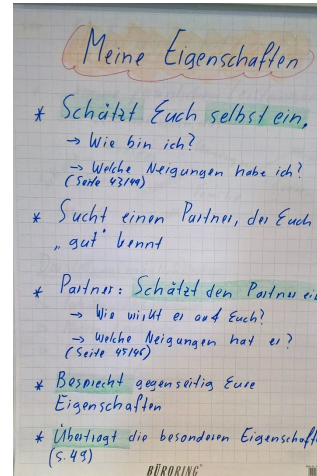 Meine Eigenschaften
* Schätzt Euch selbst ein.
→ Wie bin ich?
→ Welche Neigungen habe ich?
(Seite 43/44)
* Sucht einen Partner, der Euch
„gut“ kennt
* Partner: Schätzt den Partner ei
→ Wie wirkt er auf Euch?
→ Welche Neigungen hat er?
(Seite 45/46)
* Besprecht gegenseitig Eure
Eigenschaften
* Übertragt die besonderen Eigenschaft
(S. 49)
BÜRORING